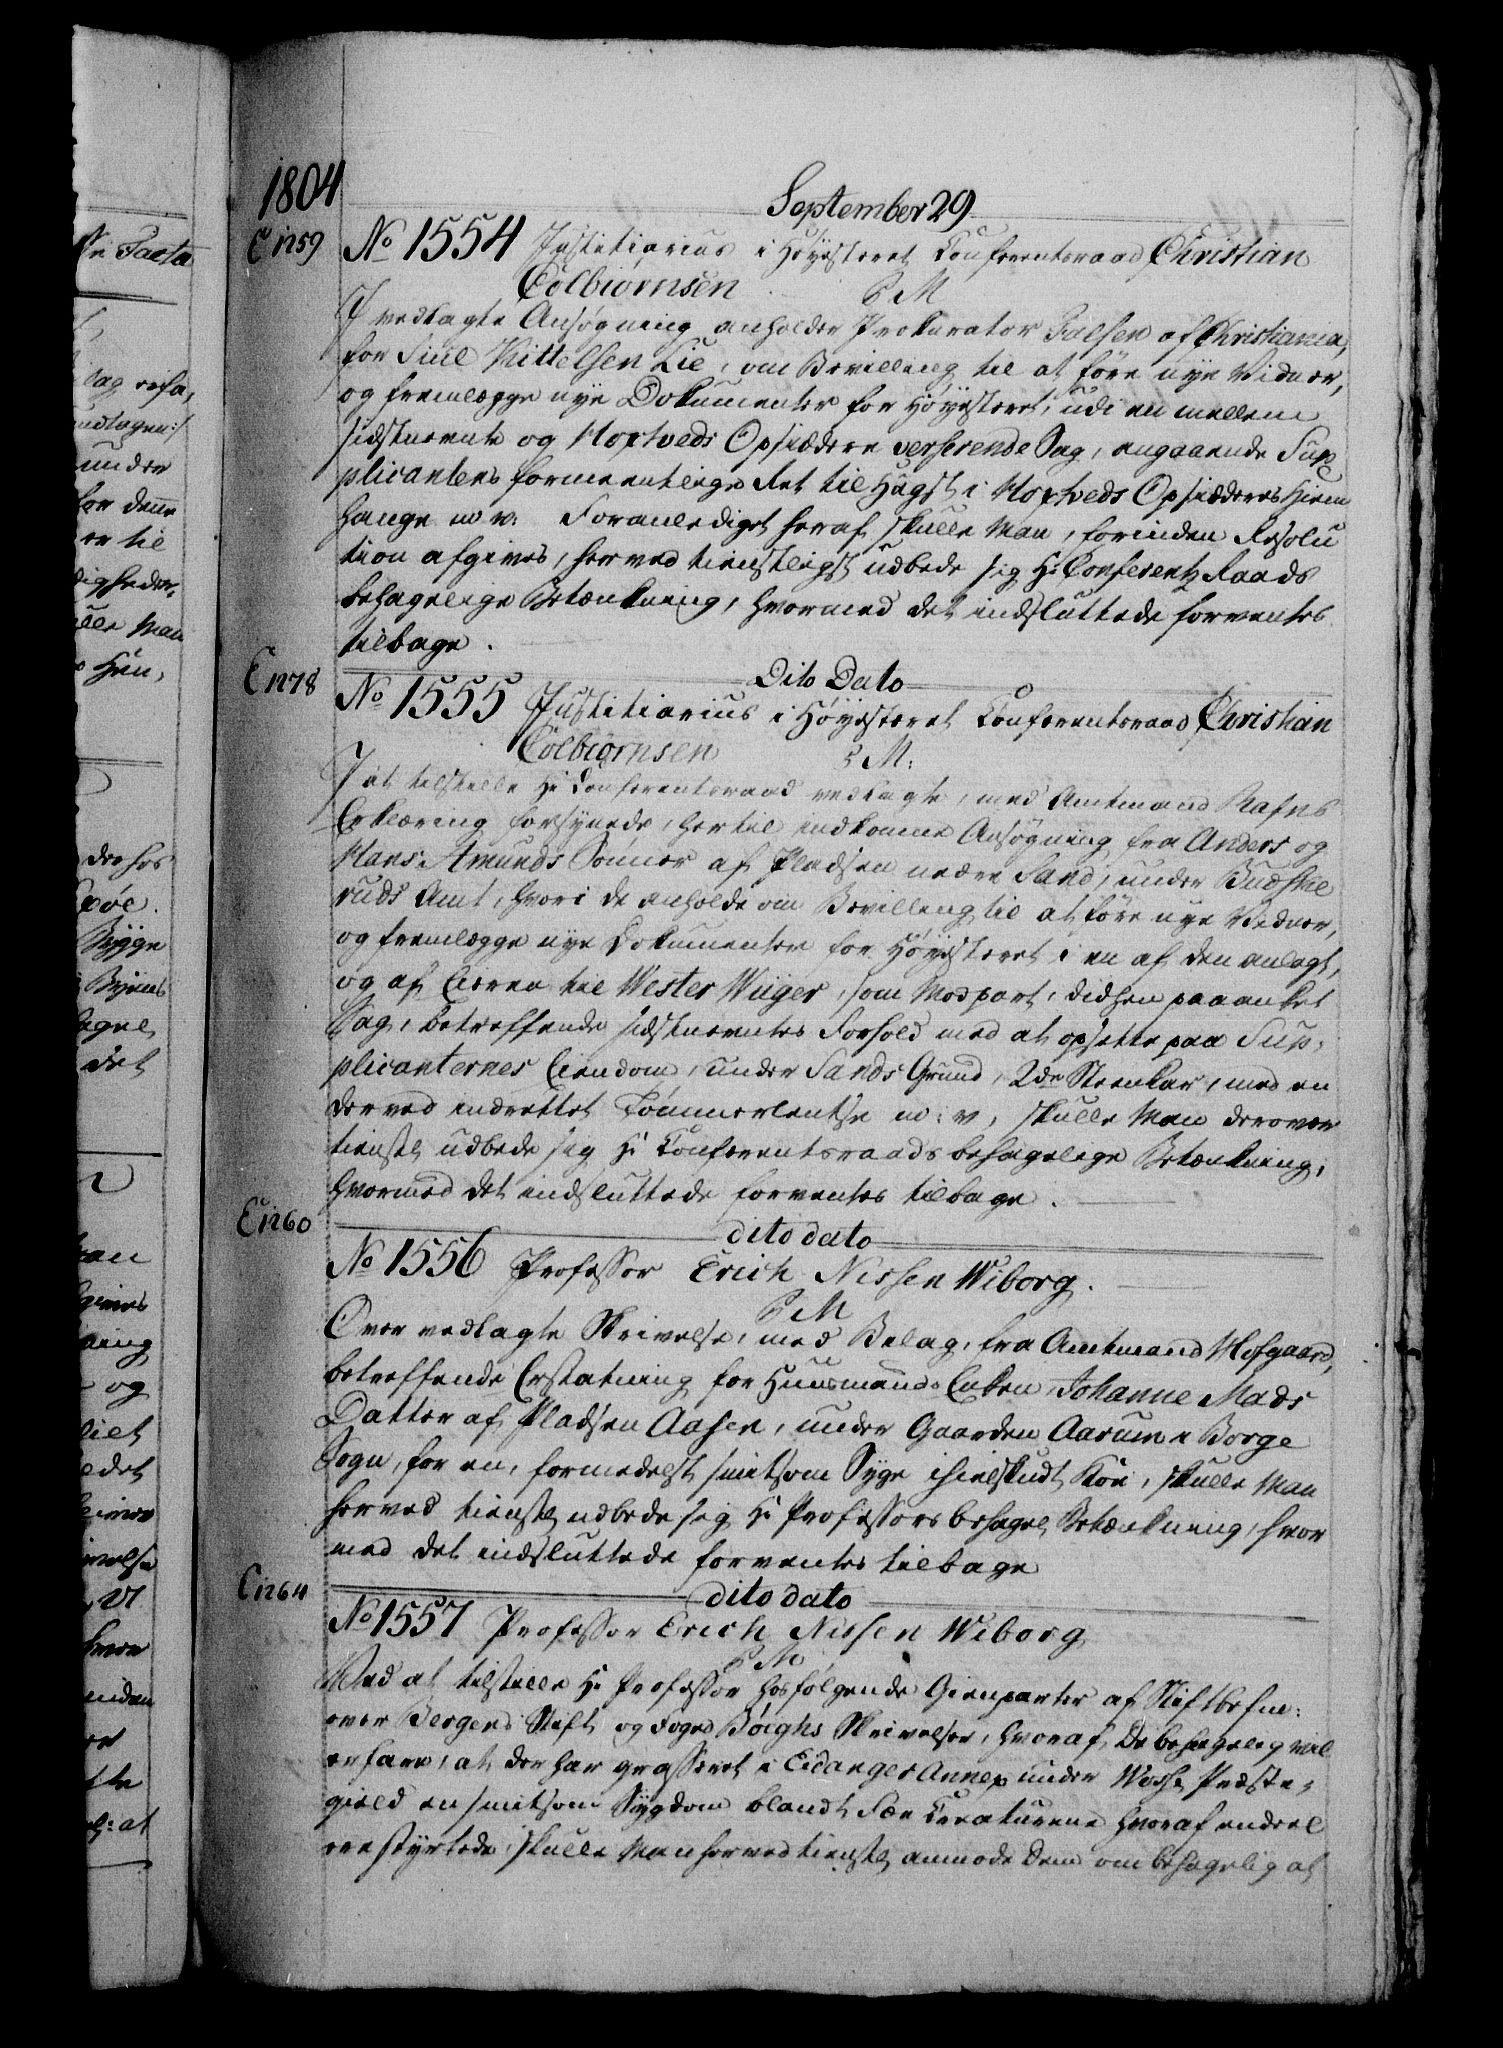 1804
September 29
C 1259
No 1554 Justitiarius i Høyesteret Conferentsraad Christian
Colbiørnsen
P M
I vedlagte Ansøgning anholder Prokurator Falsen af Christiania,
for Siul Kittelsen Lie, om Bevilling til at føre nye Vidner,
og fremlægge nye Dokumenter for Høyesteret, udi en mellem
sidstnævnte og Hoxtveds Opsiddere verserende Sag, angaaende Sup
plicantens formeentlige Ret til Hugst i Hoxtveds Opsidderes Hiem
hange m v. Foranlediget heraf skulle Man, forinden Resolu
tion afgives, herved tienstligst udbede sig Hr Conferentz Raads
behagelige Betænkning, hvormed det indsluttede forventes
tilbage.
C 1278
Dito Dato
No 1555 Justitiarius i Høyesteret Conferentsraad Christian
Colbiørnsen
P M:
I at tilstille Hr Conferentsraad vedlagte, med Amtmand Rafns
Erklæring forsynede, hertil indkomne Ansøgning fra Anders og
Hans Amunds Sønner af Pladsen nedre Sand, under Budske
ruds Amt, hvori de anholde om Bevilling til at føre nye Vidner,
og fremlægge nye Dokumenter for Høyesteret i en af den anlagt,
og af Eieren til Wester Wüger, som Modpart, didhen paaanket
Sag, betreffende sidstnævntes Forhold med at opsette paa Sup-
plicanternes Eiendom, under Sands Grund, 2de Steenkar, med en
derved indrettet Tømmerlentse m: v, skulle Man derover
tienstl udbede sig Hr Conferentsraads behagelige Betænkning,
hvormed det indsluttede forventes tilbage.
C 1260
dito dato
No 1556 Professor Erich Nissen Wiborg.
P M
Over vedlagte Skrivelse, med Bilag, fra Amtmand Hofgaard,
betreffende Erstatning for Huusmands Enken Johanne Mads
Datter af Pladsen Aasen, under Gaarden Aarum i Borge
Sogn, for en, formedelst smitsom Syge ihielskudt Koe, skulle Man
herved tienstl udbede sig Hr Professors behagel Betænkning, hvor
med det indsluttede forventes tilbage
C 1264
dito dato
No 1557 Professor Erich Nissen Wiborg
P M
Ved at tilstille Hr Professor hosfølgende Gienparter af Stiftbefal:
over Bergens Stift og Foged Böighs Skrivelser, hvoraf De behagelig vil
erfare, at der har grasseret i Eidanger Annex under Wosse Præste-
gield en smitsom Sygdom blandt Fæe Creaturene hvoraf endeel
ere styrtede, skulle Man herved tienstl anmode Dem om behagelig at